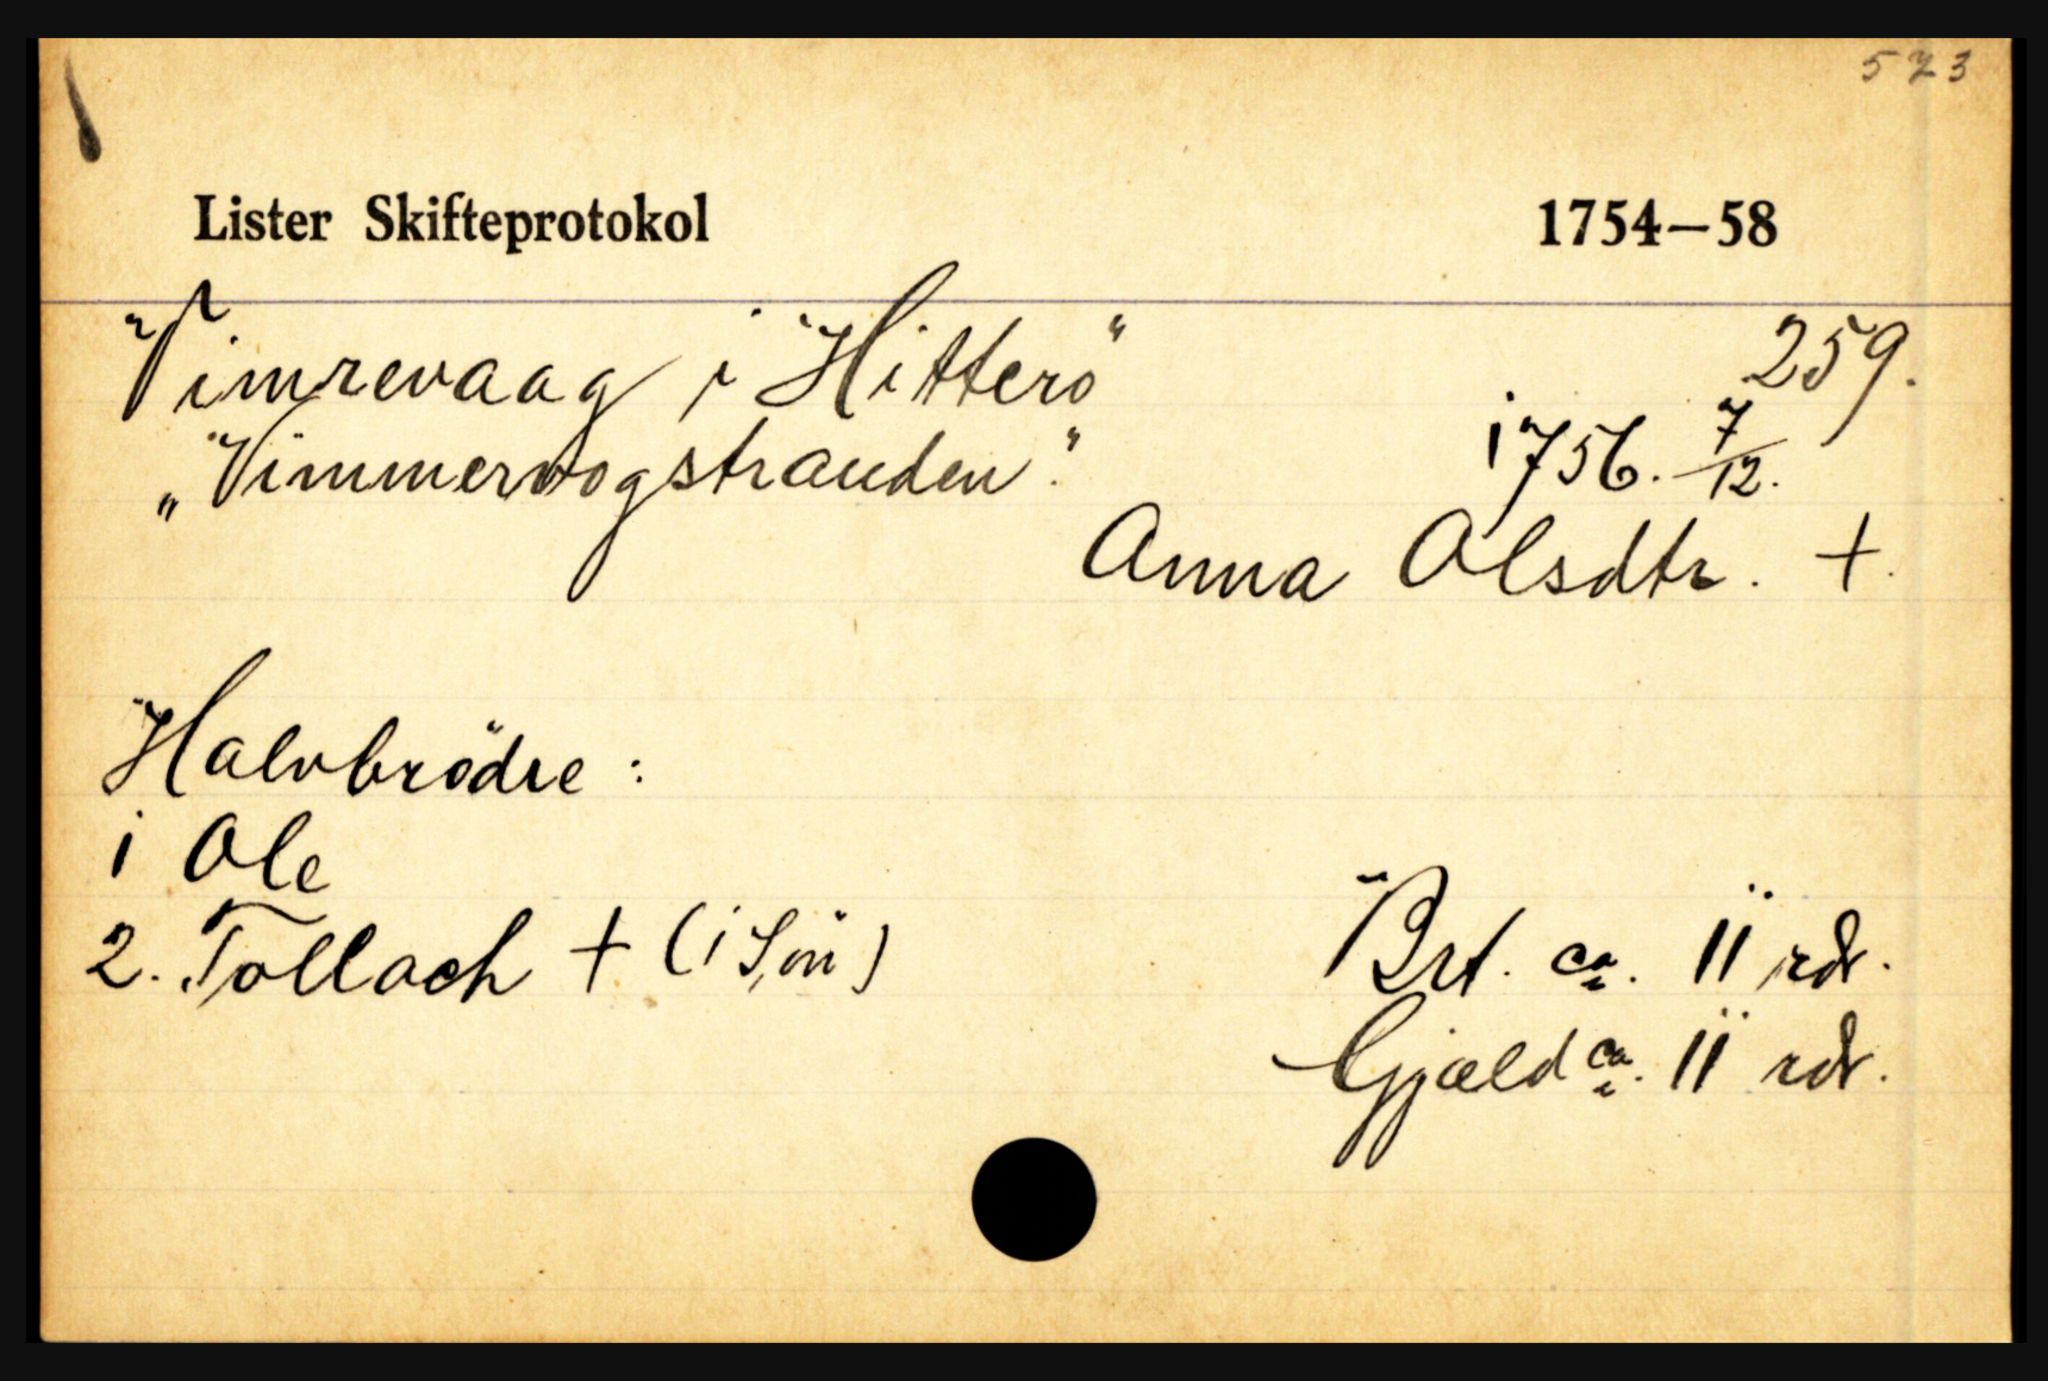 573
Lister Skifteprotokol 1754—58
Vimrevaag i Hitterö 259.
„Vimmervogstranden." 1756. 7/12.
Anna Olsdtr. +.
Halvbrödre:
1 Ole
2. Tollach + (1 Sön)
Brt. ca. 11 rdr.
Gjæld ca. 11 rdr.